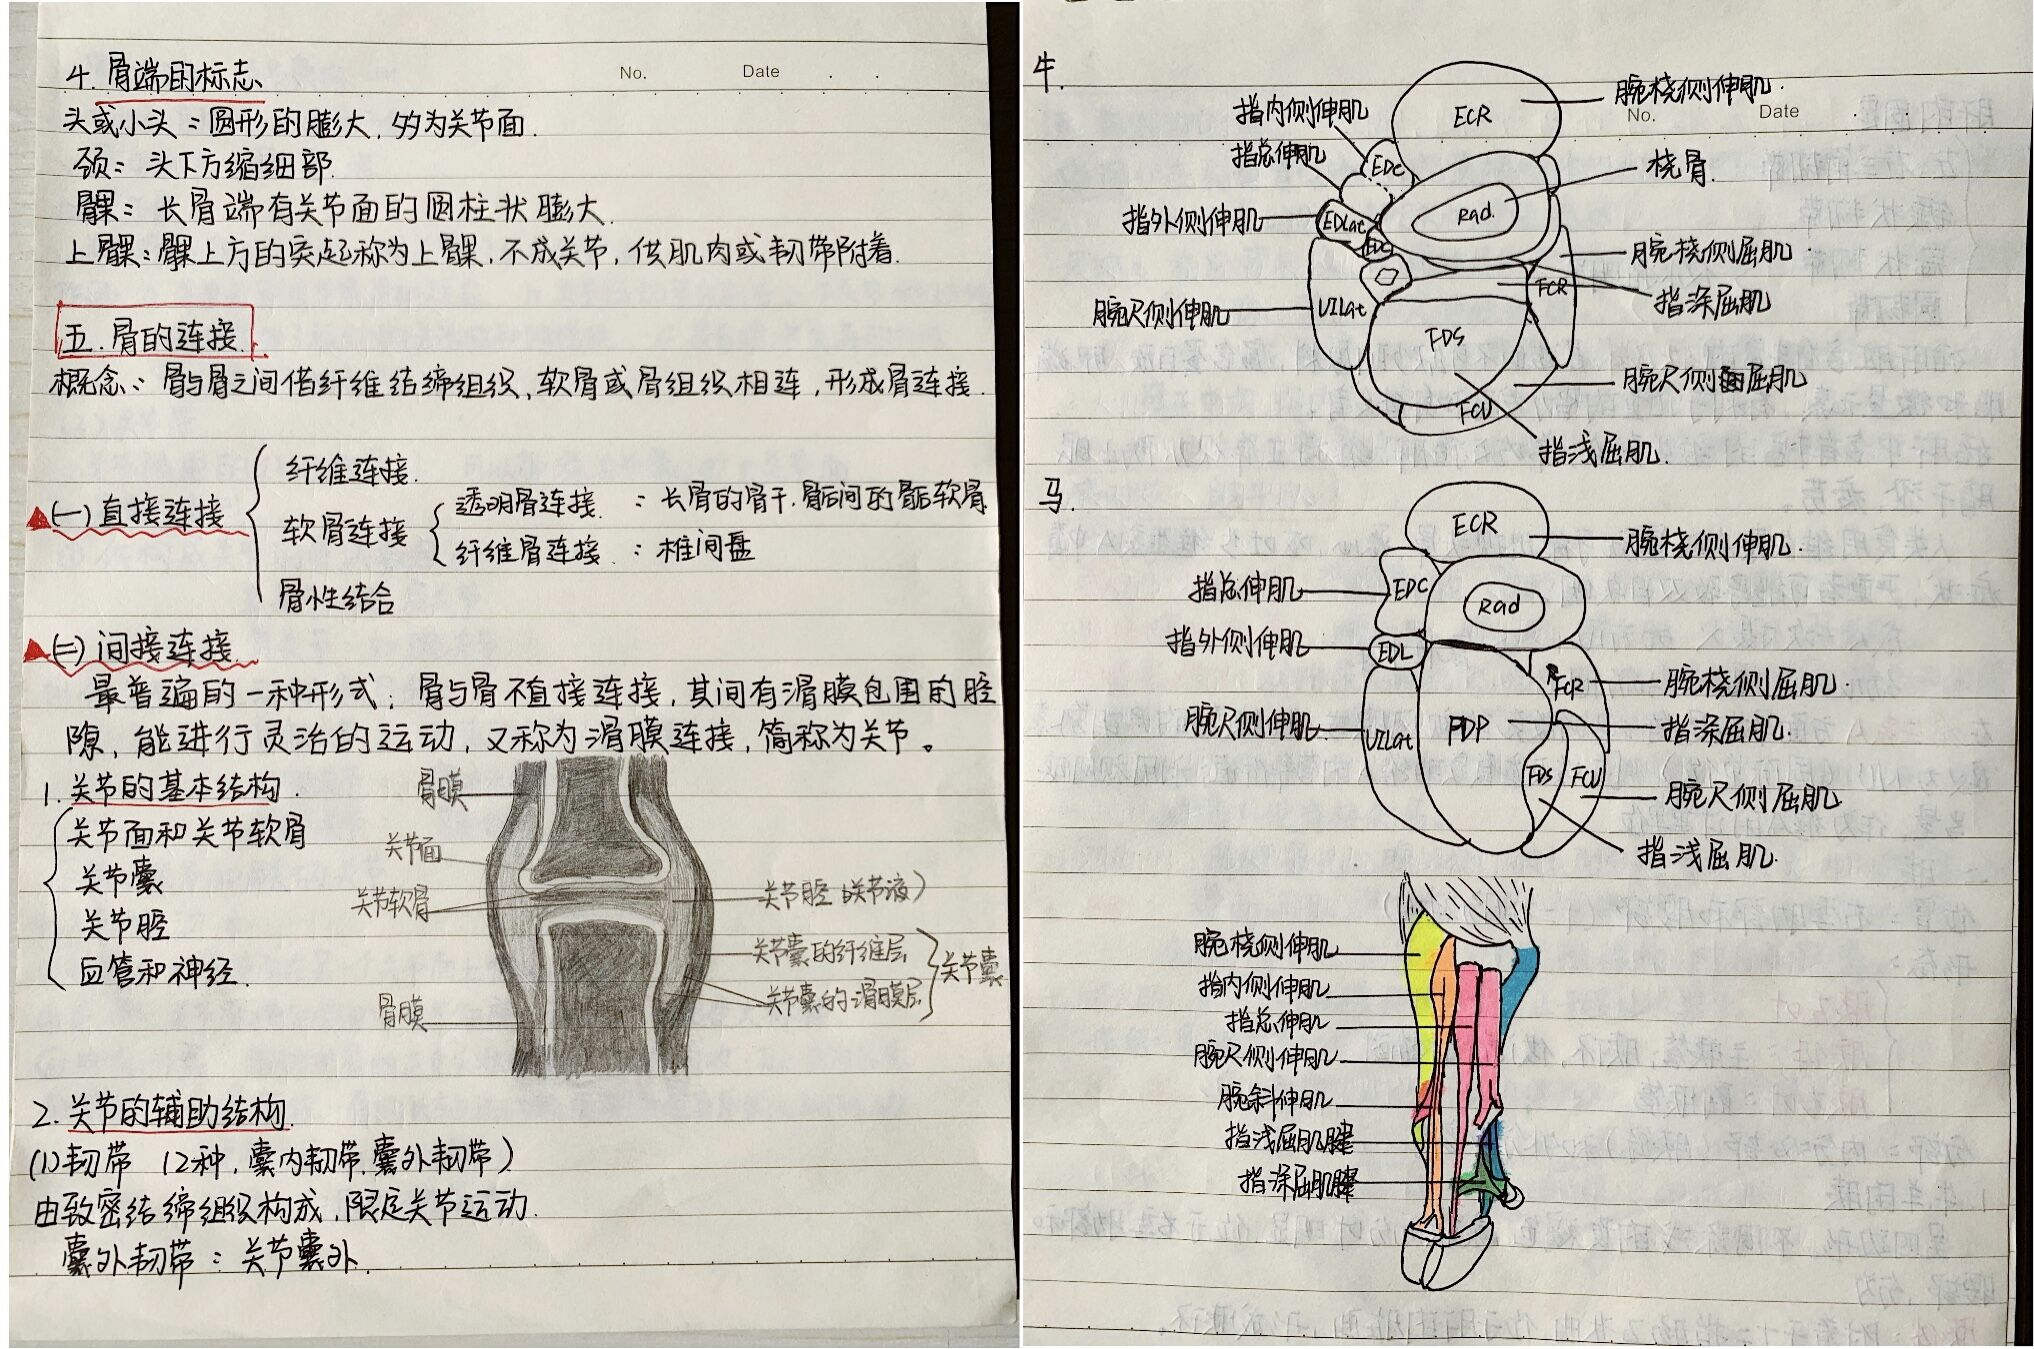 No. Date
4.骨端的标志
头或小头:圆形的膨大,多为关节面.
颈:头下方缩细部.
髁:长骨端有关节面的圆柱状膨大.
上髁:髁上方的突起称为上髁,不成关节,供肌肉或韧带附着.
五.骨的连接.
概念:骨与骨之间借纤维结缔组织,软骨或骨组织相连,形成骨连接.
(一)直接连接
纤维连接.
软骨连接
透明骨连接:长骨的骨干.骨后间的骨后软骨
纤维骨连接:椎间盘
骨性结合
(二)间接连接
最普遍的一种形式;骨与骨不直接连接,其间有滑膜包围的腔
隙,能进行灵活的运动,又称为滑膜连接,简称为关节。
1.关节的基本结构.
关节面和关节软骨
关节囊
关节腔
血管和神经.
骨膜
关节面
关节软骨
骨膜
关节腔(关节液)
关节囊的纤维层
关节囊的滑膜层
关节囊
2.关节的辅助结构.
(1)韧带 (2种,囊内韧带.囊外韧带)
由致密结缔组织构成,限定关节运动.
囊外韧带:关节囊外.
牛.
No. Date
腕桡侧伸肌.
指内侧伸肌
指总伸肌
指外侧伸肌
腕尺侧伸肌
桡骨.
腕桡侧屈肌
指深屈肌
腕尺侧屈肌
指浅屈肌.
ECR
EDC
EDLat
EDC
Rad.
ULLat
FCR
FDS
FCU
马.
腕桡侧伸肌.
指总伸肌
指外侧伸肌
腕尺侧伸肌
腕桡侧屈肌.
指深屈肌.
腕尺侧屈肌.
指浅屈肌.
ECR
EDC
Rad
EDL
FCR
ULLat
FDP
FDS
FCU
腕桡侧伸肌
指内侧伸肌
指总伸肌
腕尺侧伸肌
腕斜伸肌
指浅屈肌腱
指深屈肌腱